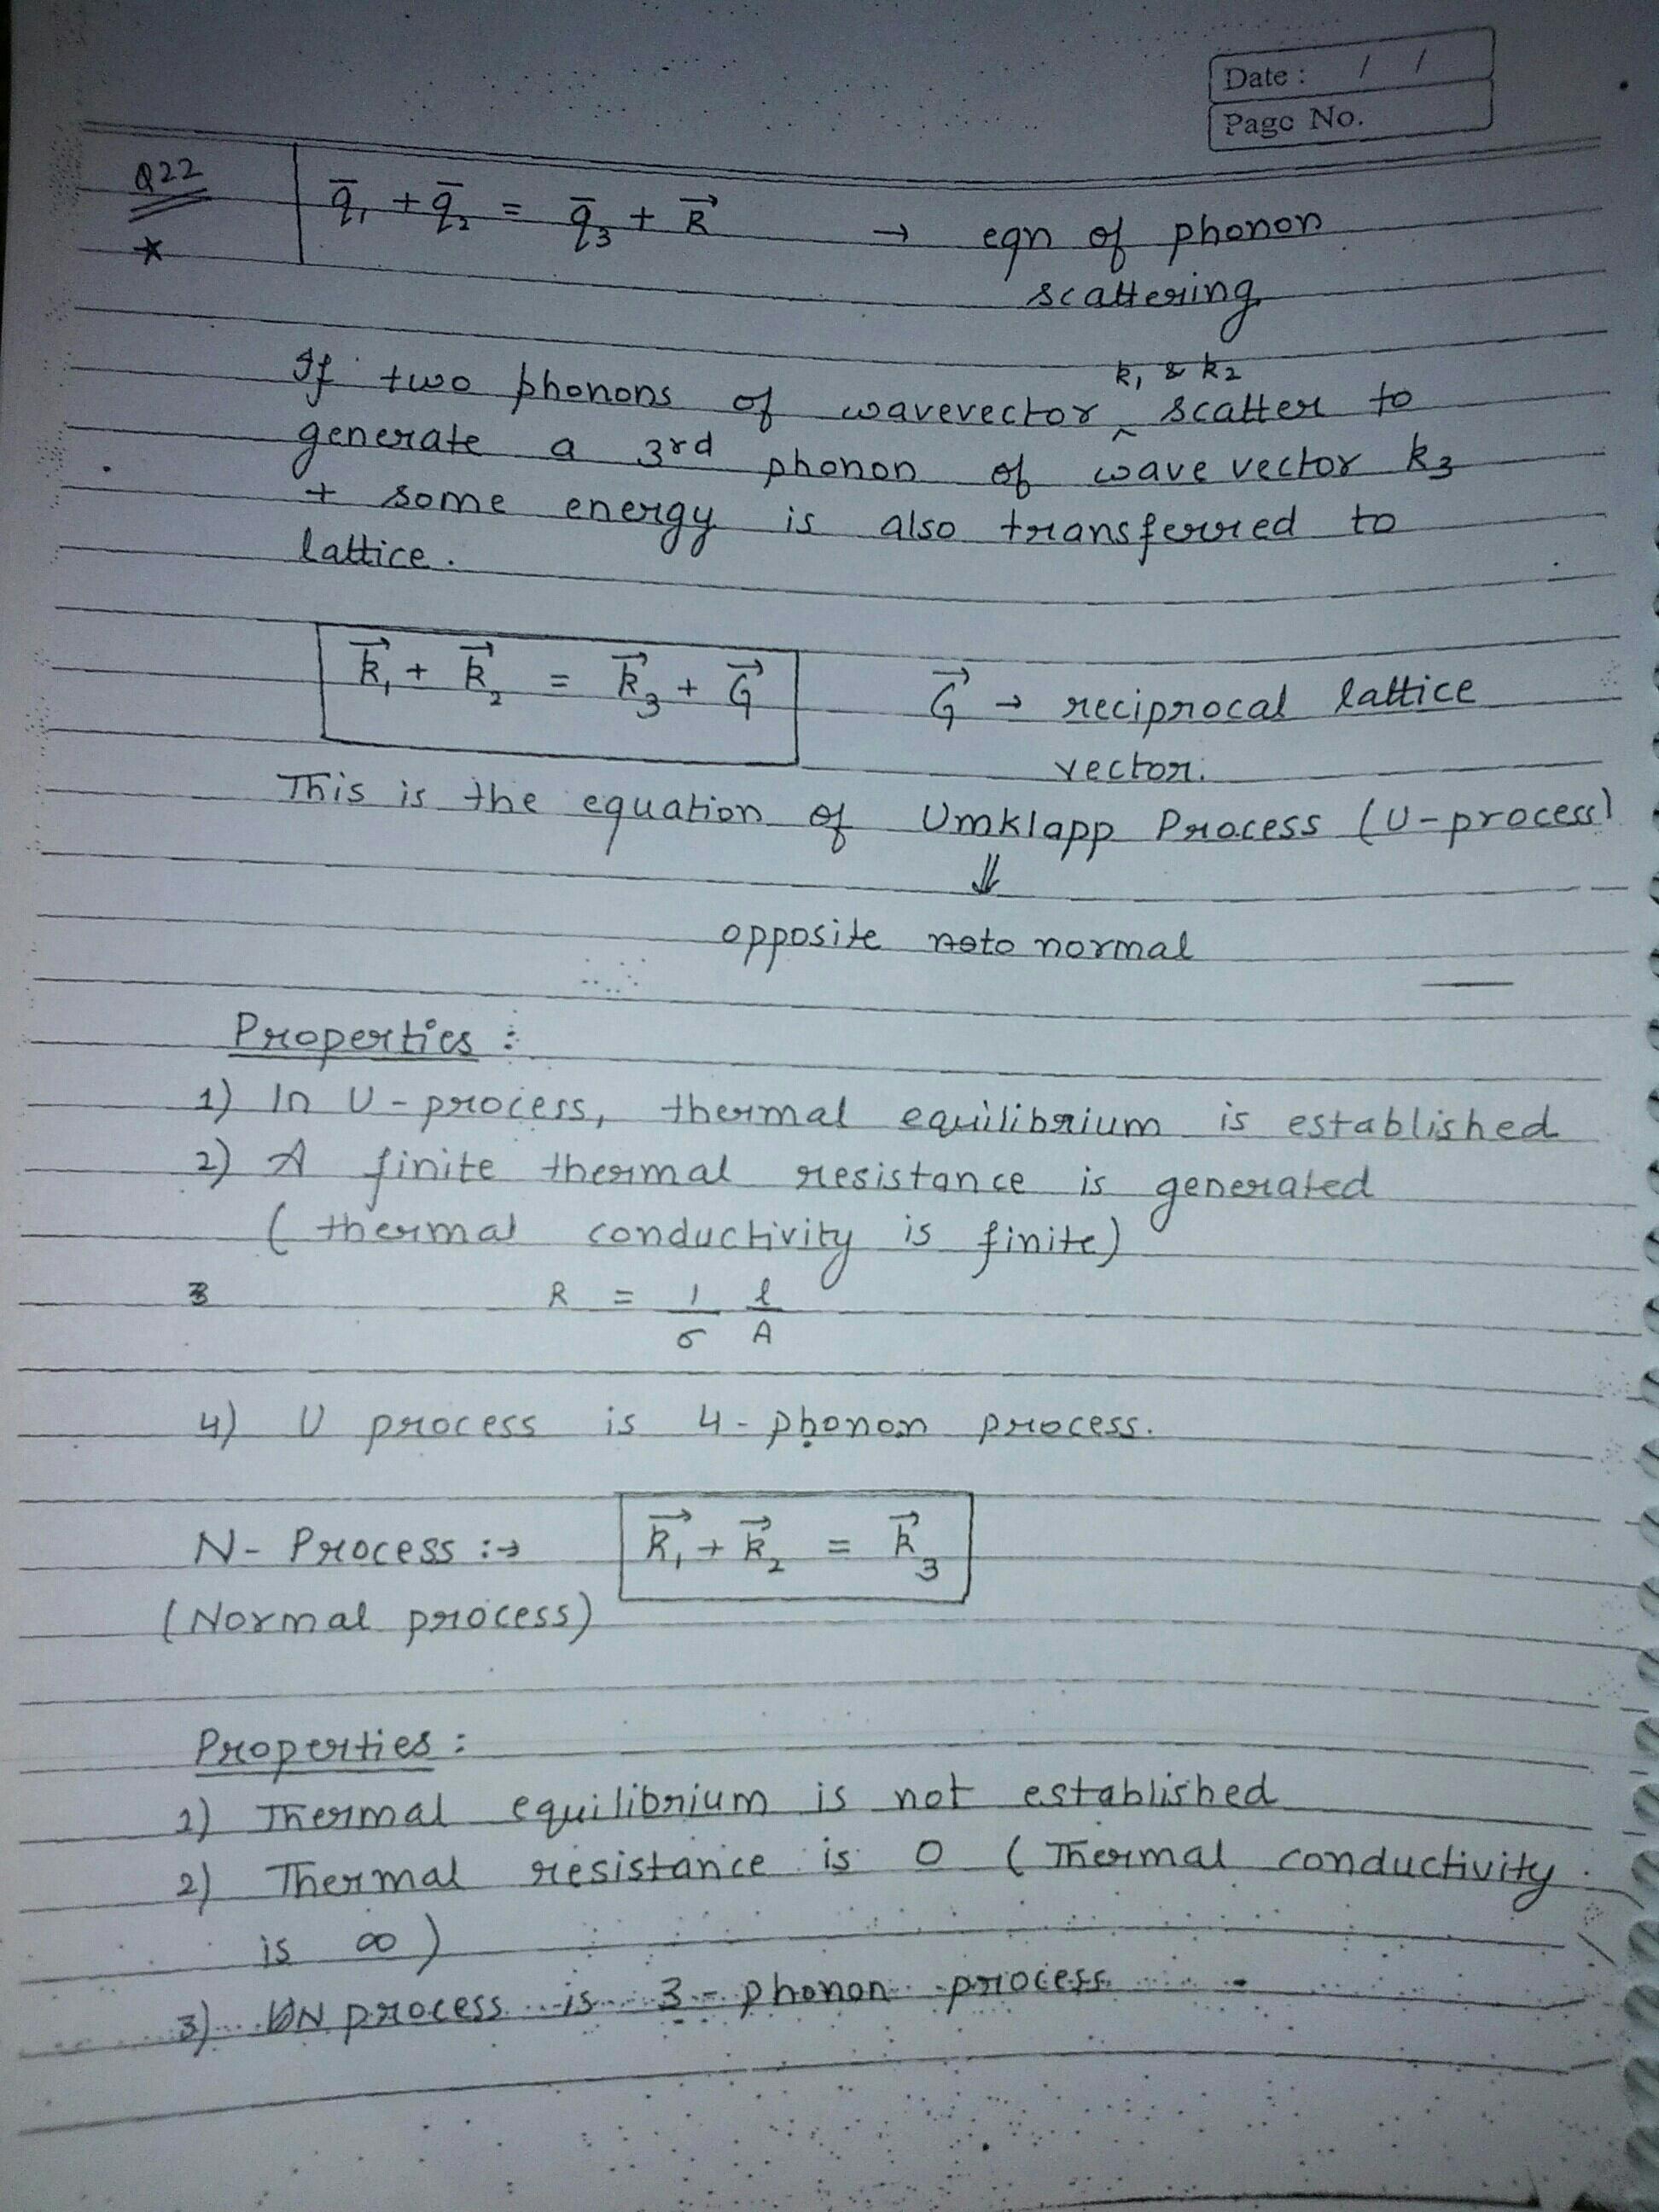 Date : / /
Page No.
Q22
*
q̄₁ + q̄₂ = q̄₃ + R⃗ → eqn of phonon
scattering
k₁ & k₂
If two phonons of wavevector ^ scatter to
generate a 3rd phonon of wave vector k₃
+ some energy is also transferred to
lattice.
k⃗₁ + k⃗₂ = k⃗₃ + G⃗ G⃗ → reciprocal lattice
vector.
This is the equation of Umklapp Process (U-process)
⇓
opposite to normal
Properties :
1) In U-process, thermal equilibrium is established
2) A finite thermal resistance is generated
( thermal conductivity is finite)
3 R = 1/σ l/A
4) U process is 4-phonon process.
N- Process :→ k⃗₁ + k⃗₂ = k⃗₃
(Normal process)
Properties :
1) Thermal equilibrium is not established
2) Thermal resistance is 0 ( Thermal conductivity
is ∞ )
3) N process is 3-phonon process